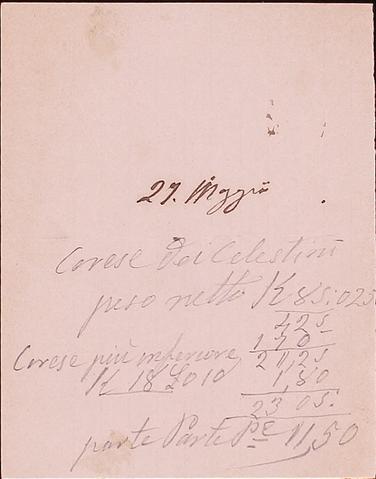 27. Maggio
Corese dei Celestini
peso netto K 85:025
425
170-
Corese più inferiore 2125
K 18 £010 1,80
23 05:
parte Parte Pe 11,50